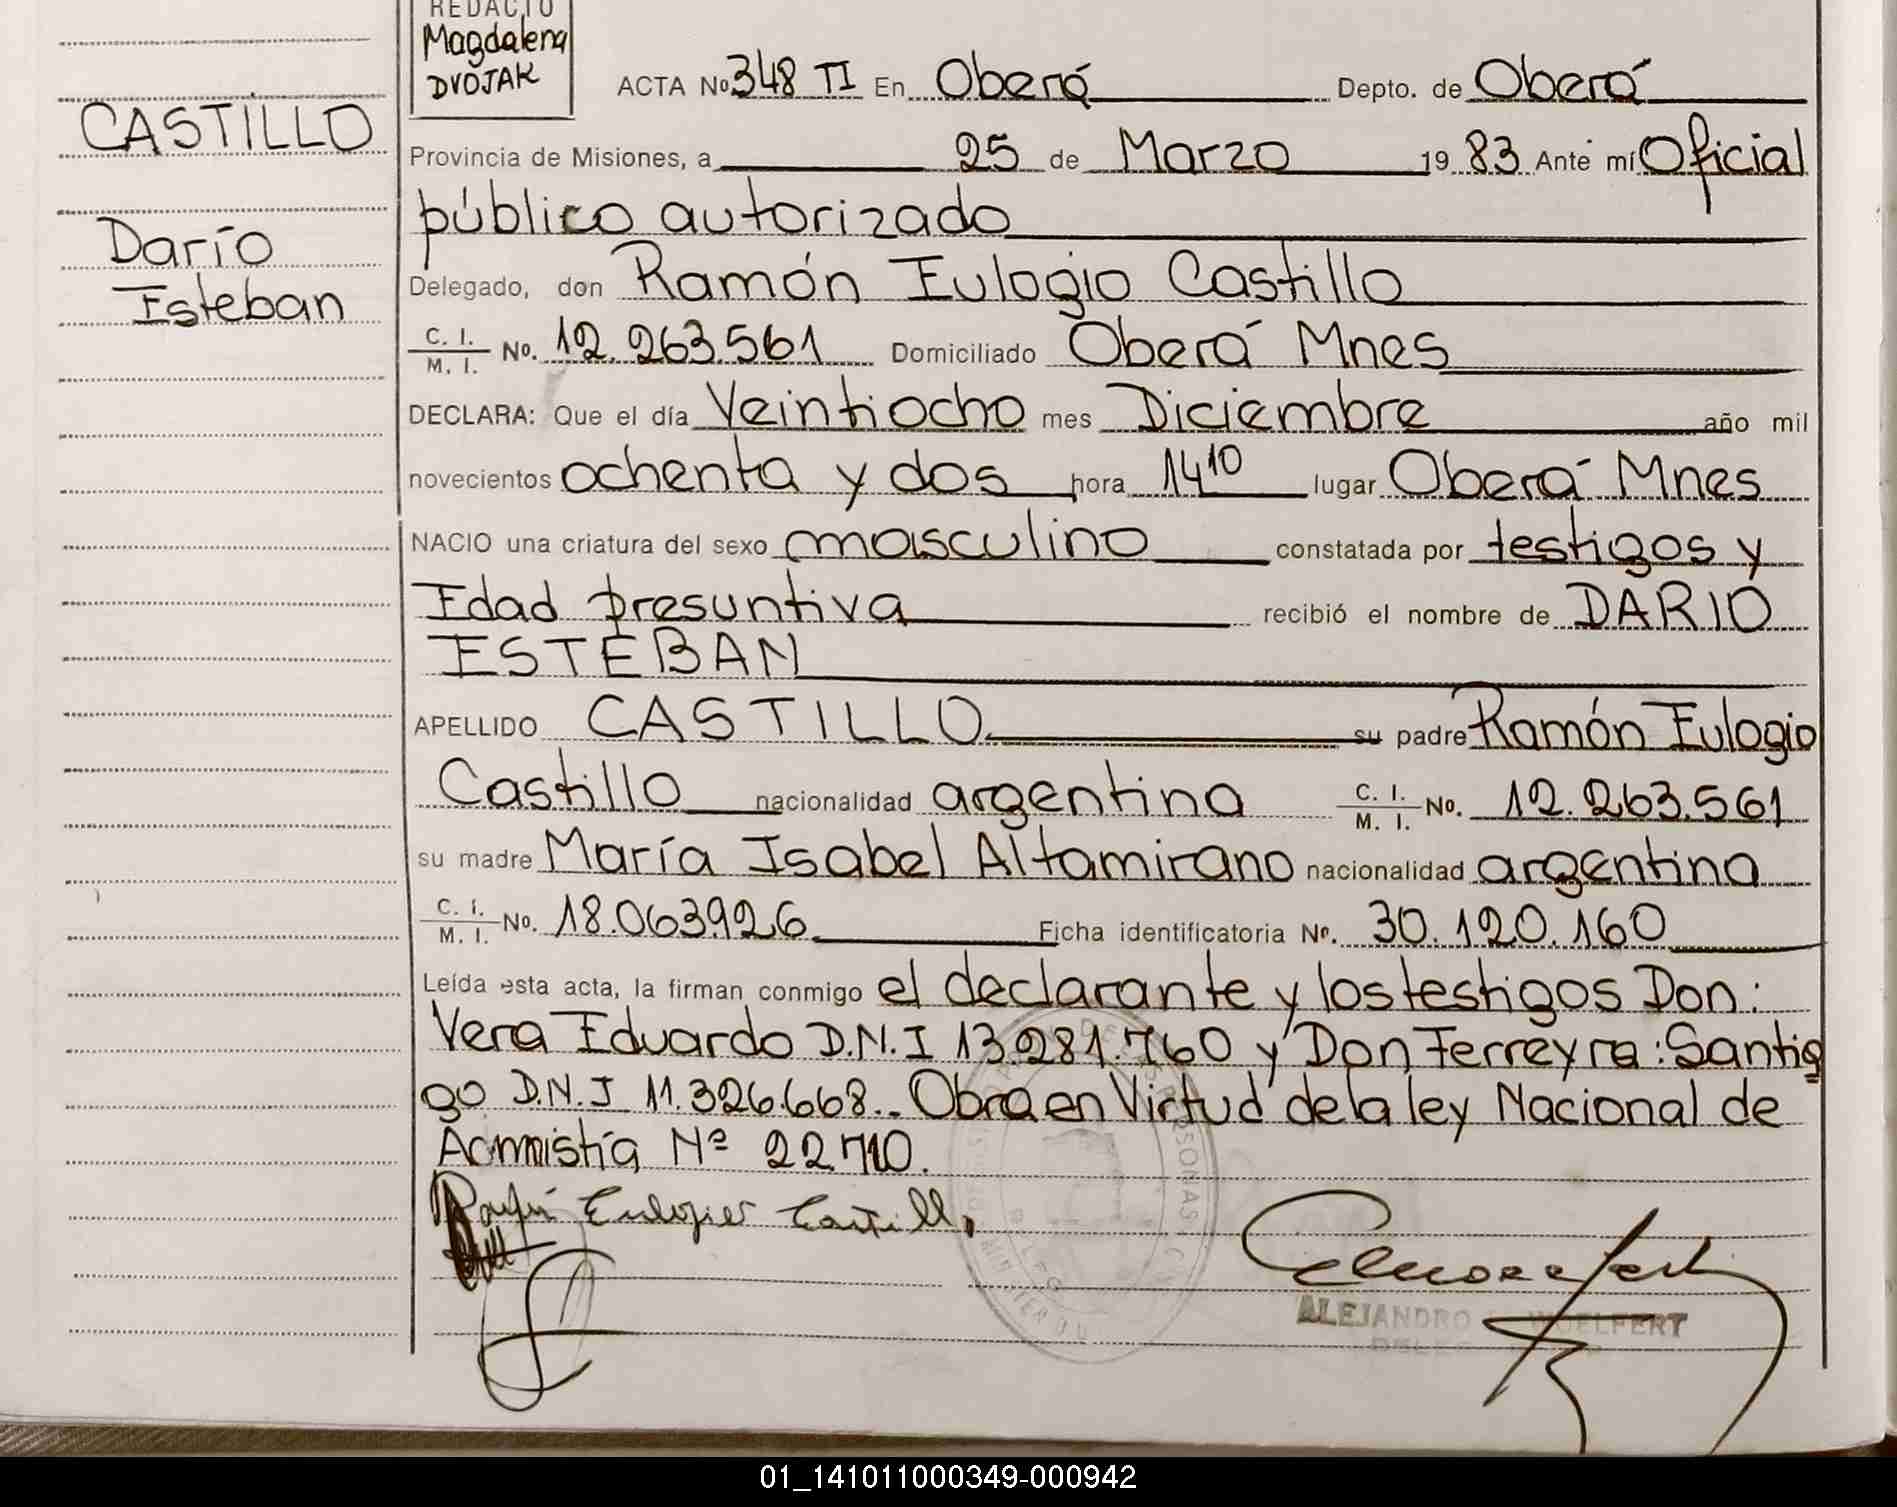 REDACTO
Magdalena
DVOJAK
CASTILLO
Darío
Esteban
ACTA No 348 TI En Oberá Depto. de Oberá
Provincia de Misiones, a 25 de Marzo 19 83 Ante mí Oficial
público autorizado
Delegado, don Ramón Eulogio Castillo
C. I. / M. I. No. 12.263.561 Domiciliado Oberá Mnes
DECLARA: Que el día Veintiocho mes Diciembre año mil
novecientos ochenta y dos hora 14 10 lugar Oberá Mnes
NACIO una criatura del sexo masculino constatada por testigos y
Edad presuntiva recibió el nombre de DARIO
ESTEBAN
APELLIDO CASTILLO su padre Ramón Eulogio
Castillo nacionalidad argentina C. I. / M. I. No. 12.263.561
su madre María Isabel Altamirano nacionalidad argentina
C. I. / M. I. No. 18.063926 Ficha identificatoria No. 30.120.160
Leída esta acta, la firman conmigo el declarante y los testigos Don:
Vera Eduardo D.N.I 13.281.760 y Don Ferreyra: Santia
go D.N.I 11.326.668.. Obra en Virtud de la ley Nacional de
Acmnistía Nº 22.710.
ALEJANDRO WOELFERT
01_141011000349-000942